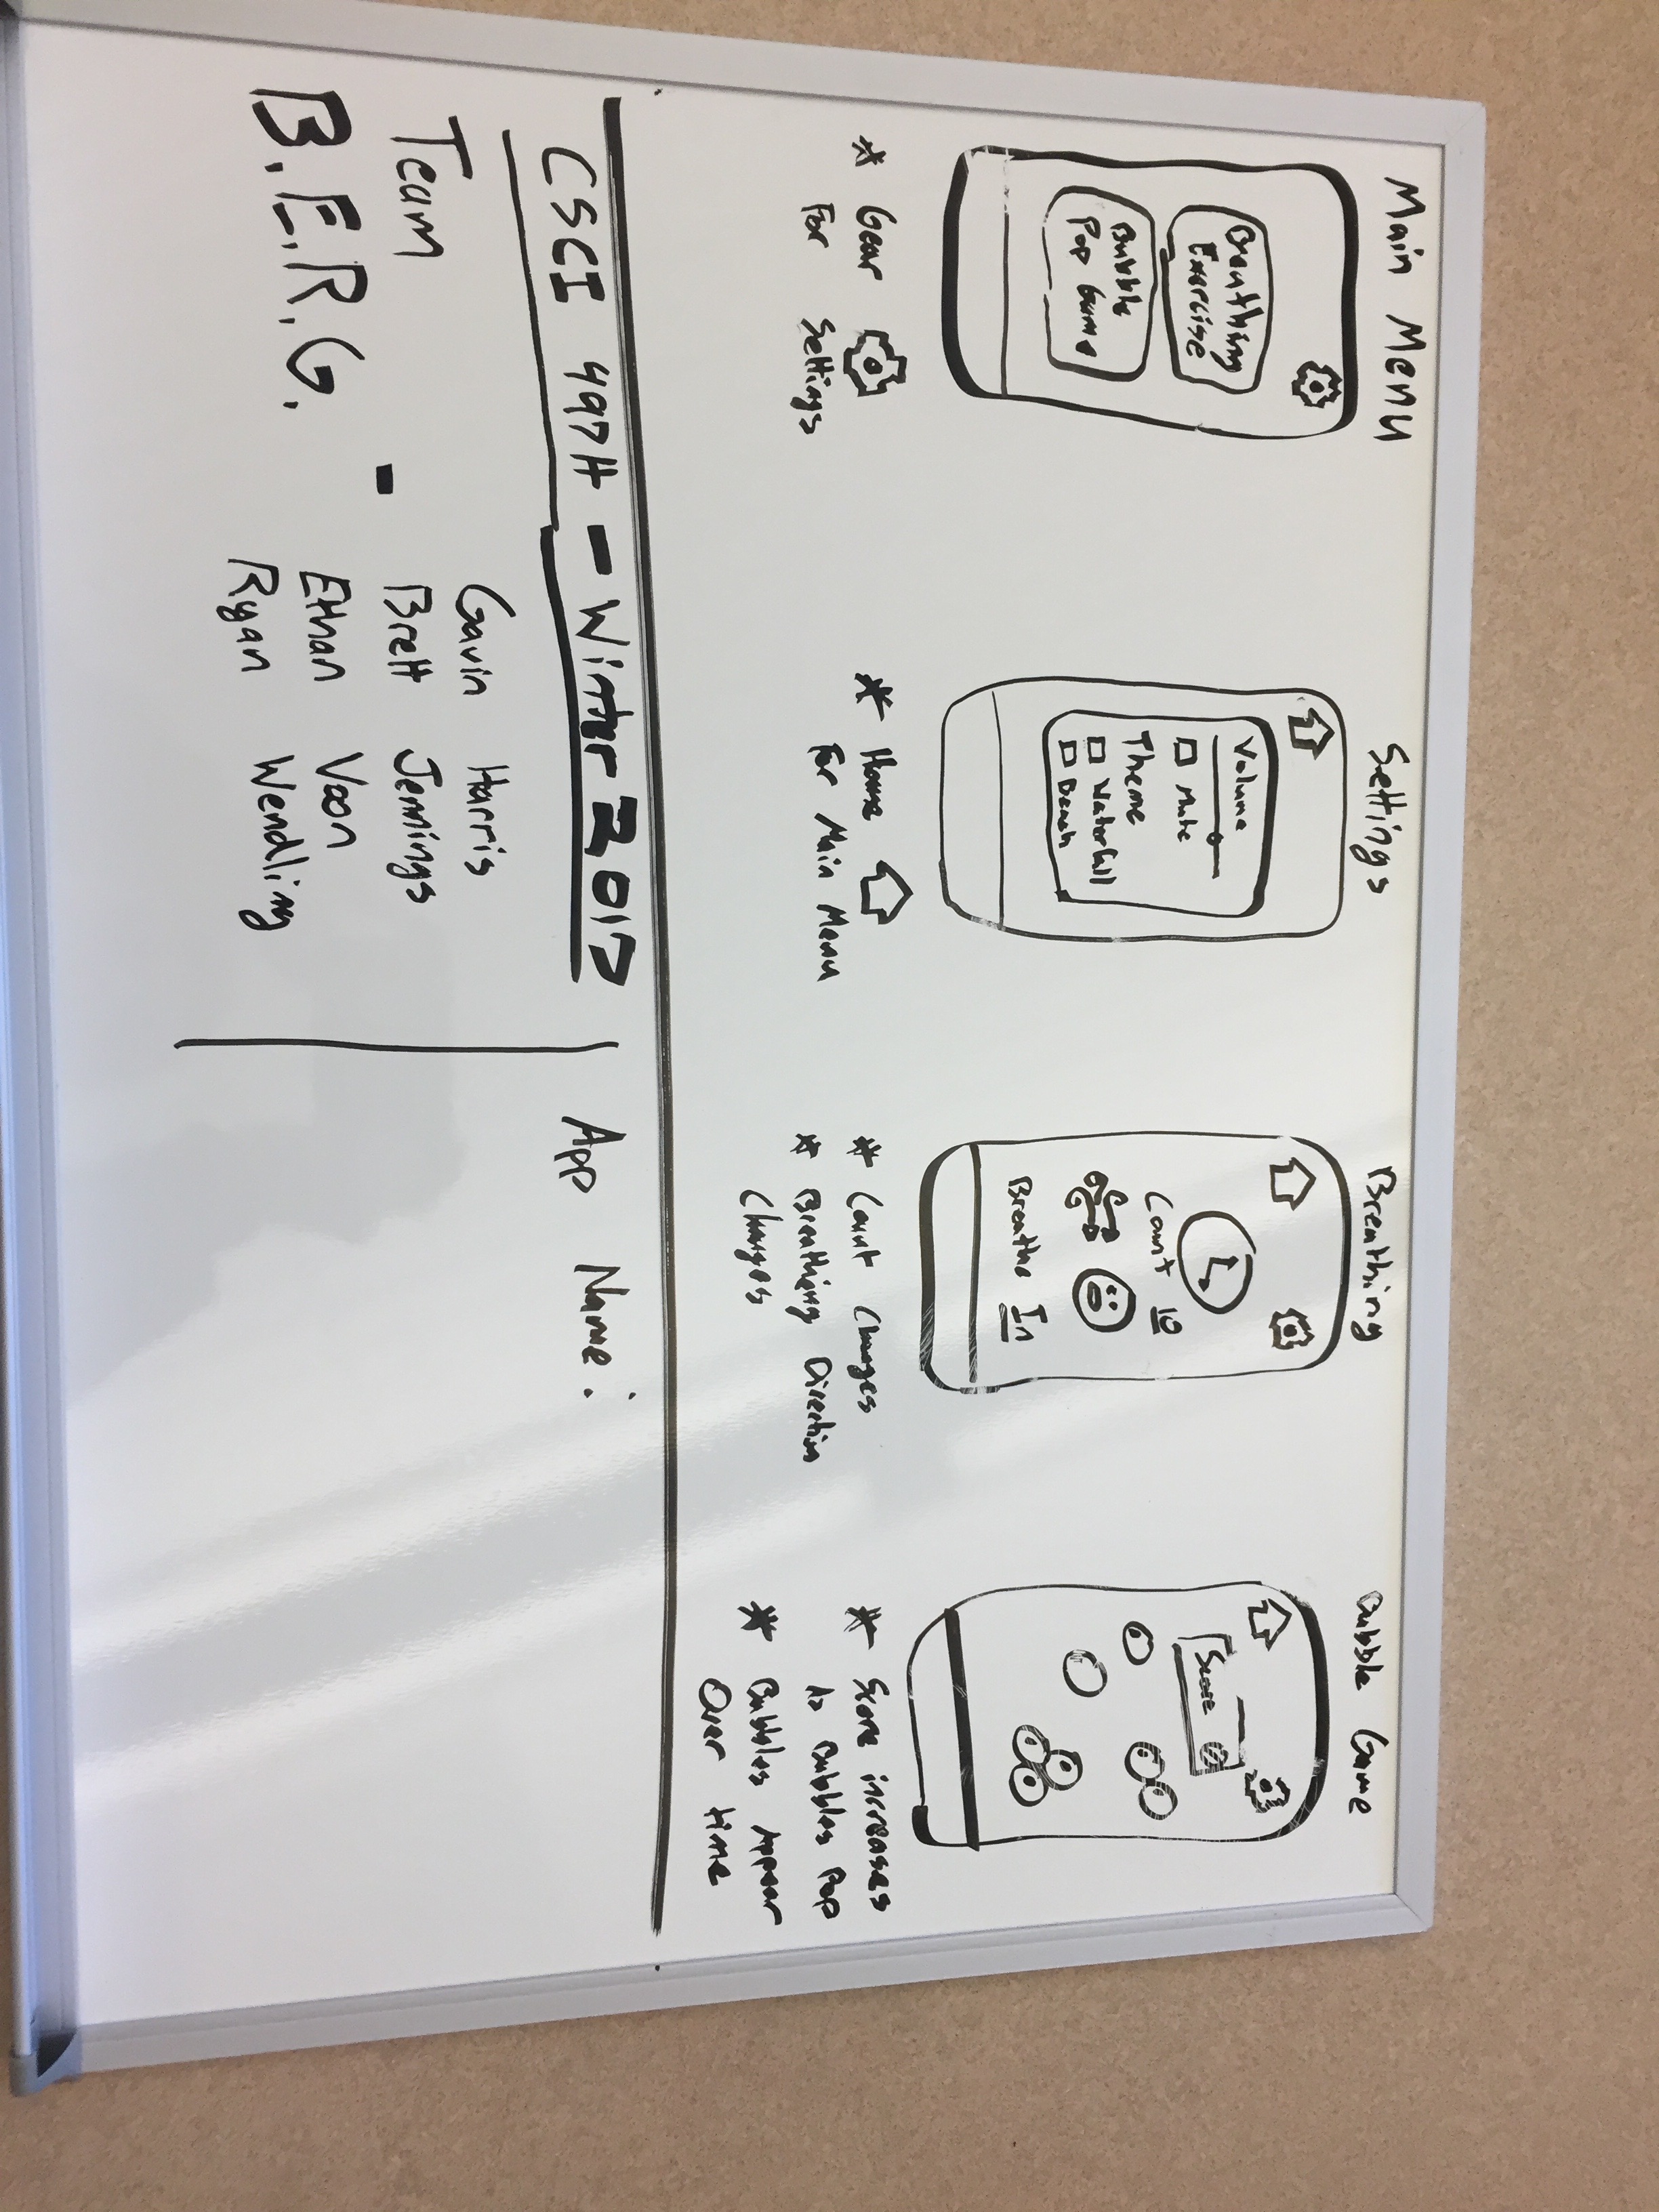 Main Menu
Breathing
Exercise
Bubble
Pop Game
* Gear
For Settings
Settings
Volume
Mute
Theme
Waterfall
Beach
* Home
For Main Menu
Breathing
Count 10
Breathe In
* Count Changes
* Breathing Direction
Changes
Bubble Game
Score
* Score increases
As Bubbles Pop
* Bubbles Appear
Over time
CSCI 497H - Winter 2017
Team
B.E.R.G. -
Gavin Harris
Brett Jennings
Ethan Voon
Ryan Wendling
App Name: